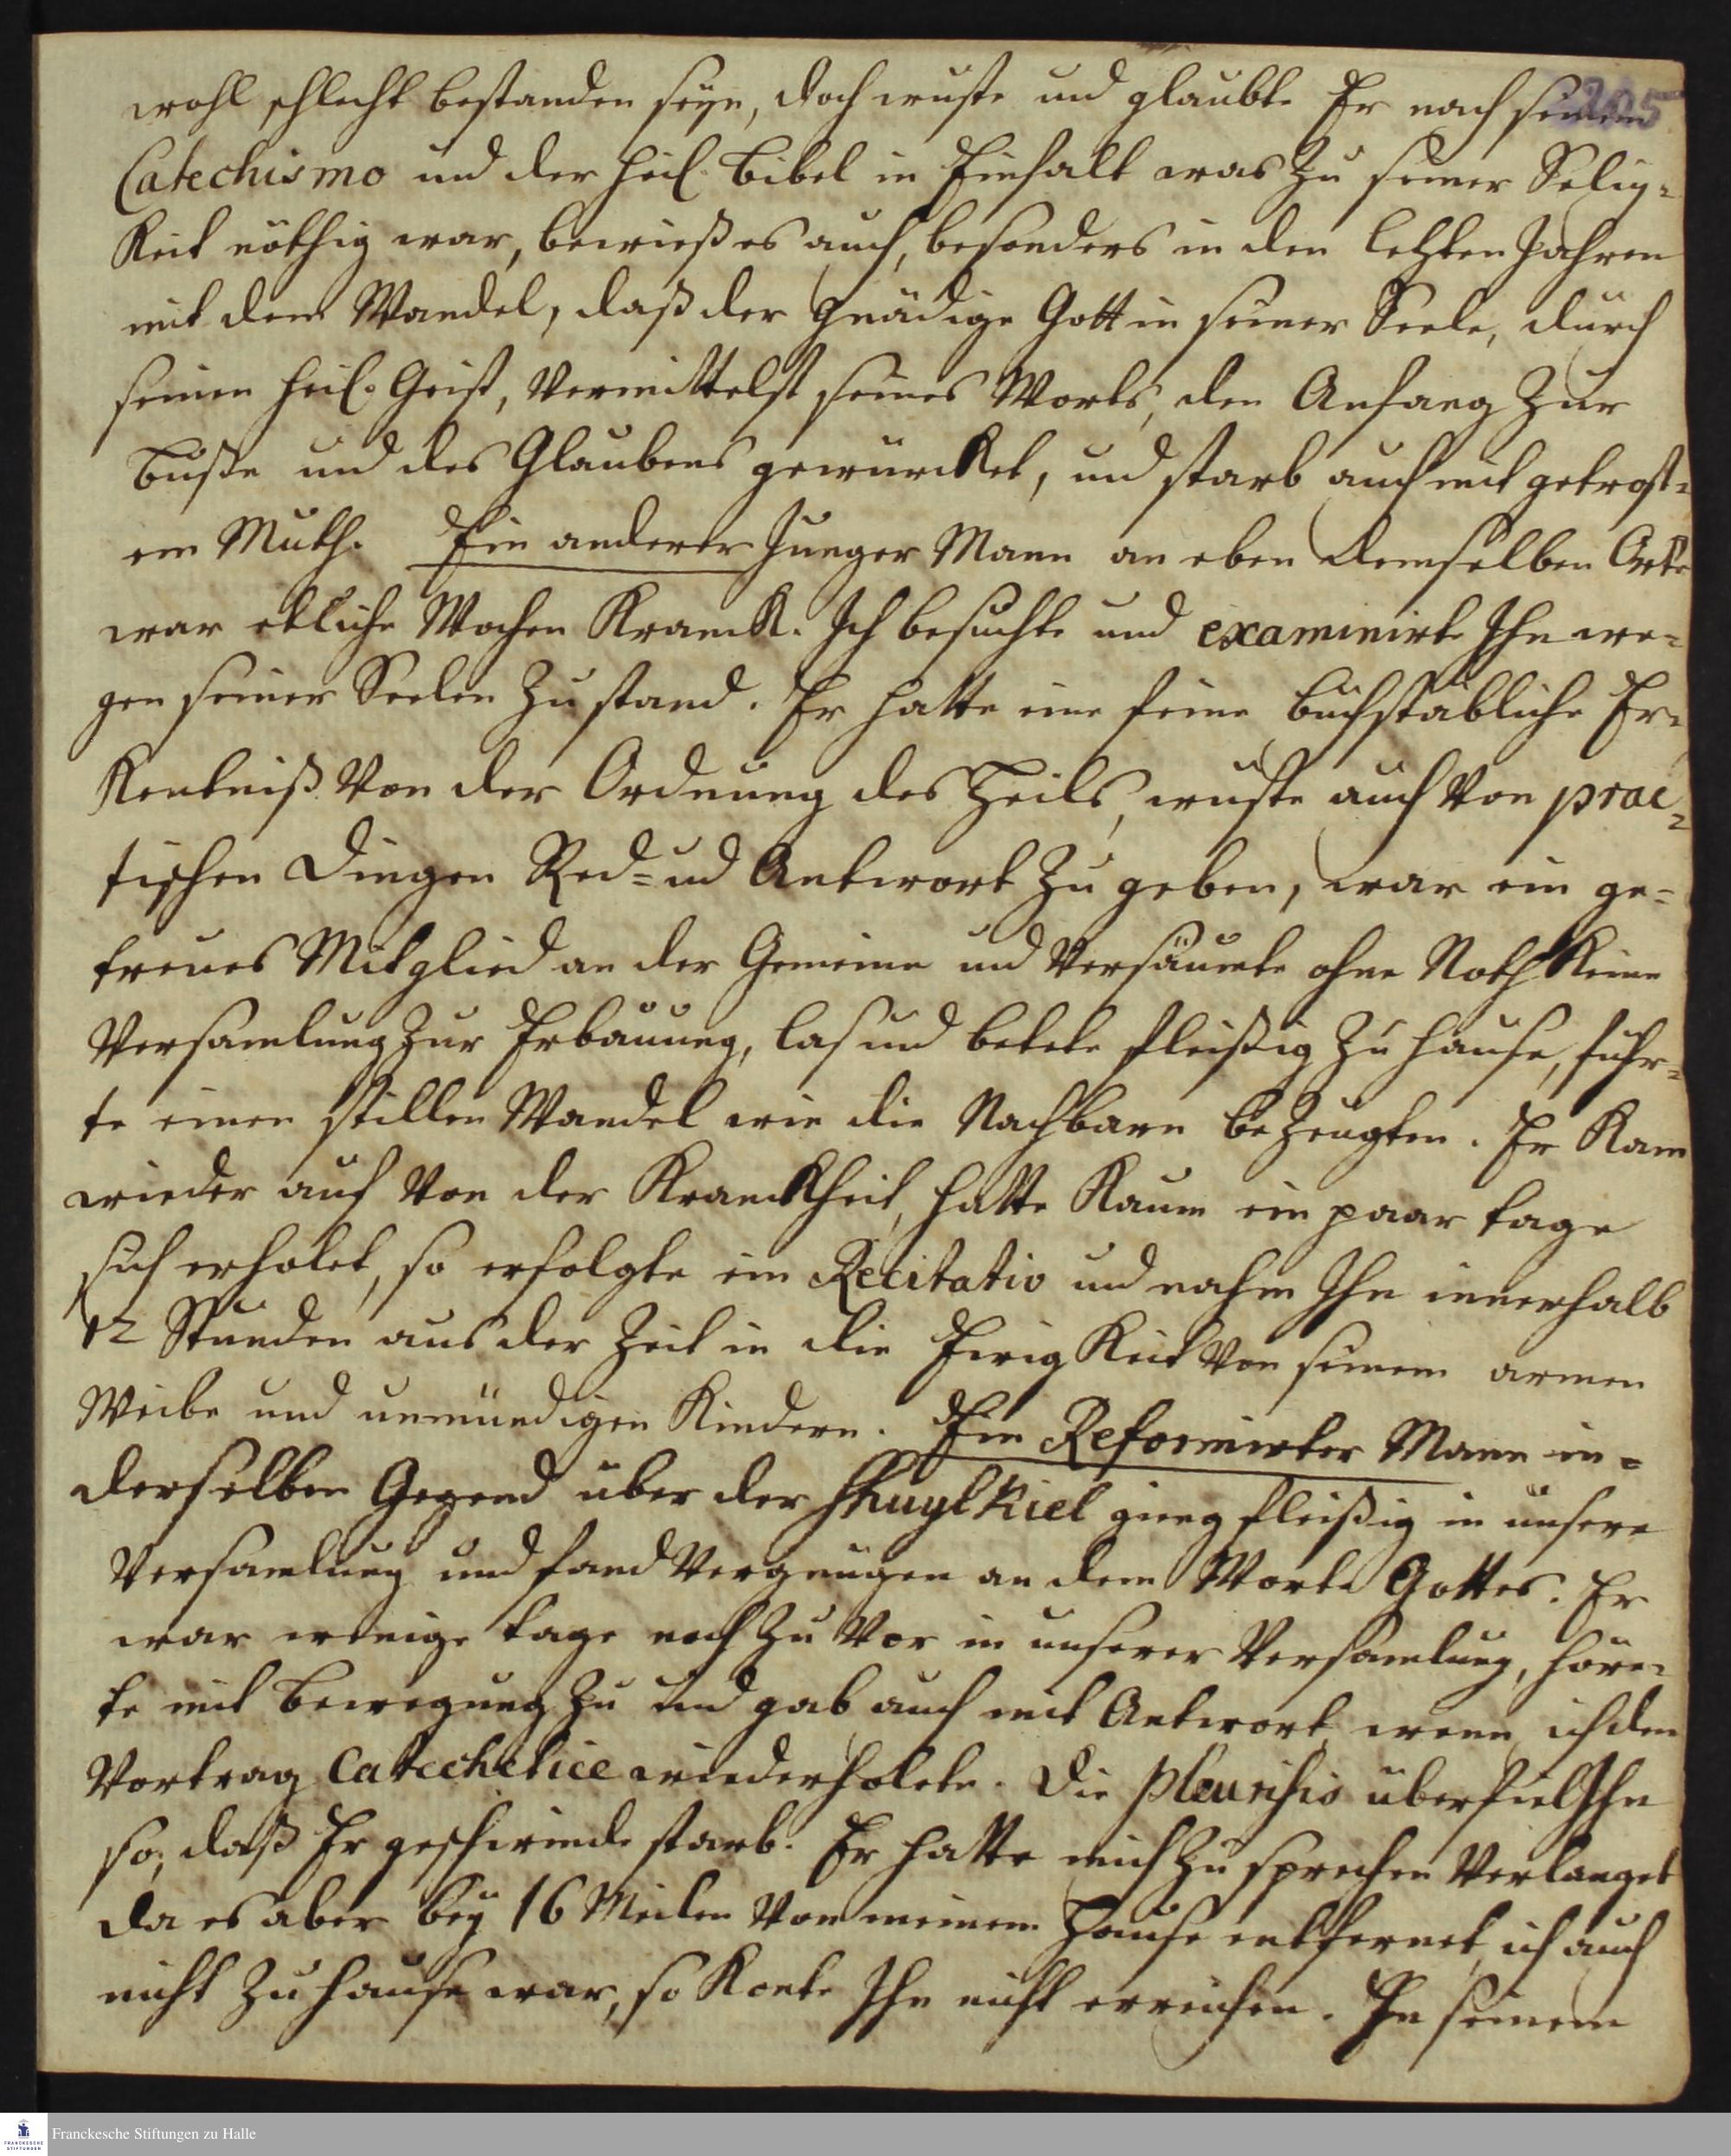 205
wohl schlecht bestanden seyn, doch wuste und glaubte Er nach seinem
Catechismo und der heil. Bibel in Einfalt was zu seiner Selig=
keit nöthig war, bewieß es auch, besonders in den letzten Jahren
mit dem Wandel, daß der gnädige Gott in seiner Seele, durch
seinen heil. Geist, vermittelst seines Worts, den Anfang zur
Buße und des Glaubens gewürcket, und starb auch mit getrost=
em Muth. Ein anderer Junger Mann an eben demselben Orte
war etliche Wochen Kranck. Ich besuchte und examinirte Ihn we=
gen seiner Seelen Zustand. Er hatte eine feine buchstäbliche Er=
kentniß von der Ordnung des Heils, wuste auch von prac=
tischen Dingen Red= und Antwort zu geben, war ein ge=
treues Mitglied an der Gemeine und versäumte ohne Noth keine
Versamlung zur Erbauung, las und betete fleißig zu Hause, führ=
te einen stillen Wandel wie die Nachbarn bezeugten. Er kam
wieder auf von der Kranckheit, hatte kaum ein paar tage
sich erholet, so erfolgte ein Recitativ und nahm Ihn innerhalb
12 Stunden aus der Zeit in die Ewigkeit von seinem armen
Weibe und unmündigen Kindern. Ein Reformirter Mann in=
derselben Gegend über der Shuylkiel gieng fleißig in unsere
Versamlung und fand Vergnügen an dem Worte Gottes. Er
war wenige tage noch zu vor in unserer Versamlung, höre=
te mit Bewegung zu und gab auch mit Antwort, wenn ich den
Vortrag Catechetice wiederholete. Die pleurisis überfiel Ihn
so, daß Er geschwinde starb. Er hatte mich zu sprechen verlanget
da es aber bey 16 Meilen von meinem Hause entfernet, ich auch
nicht zu Hause war, so konte Ihn nicht erreichen. In seinem
Franckesche Stiftungen zu Halle
FRANCKESCHE
STIFTUNGEN